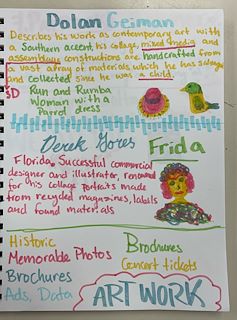 Dolan Geiman
Describes his work as contemporary art with
a Southern accent, his collage, mixed media and
assemblage constructions are handcrafted from
a vast array of materials which he has
and collected since he was a child.
3D Run and Rumba
Woman with a
Parrot dress
Derek Gores Frida
Florida. Successful commercial
designer and illustrator, renowned
for his collage portraits made
from recycled magazines, labels
and found materials
Historic
Memorable Photos
Brochures
Ads, Data
Brochures
Concert tickets
ART WORK